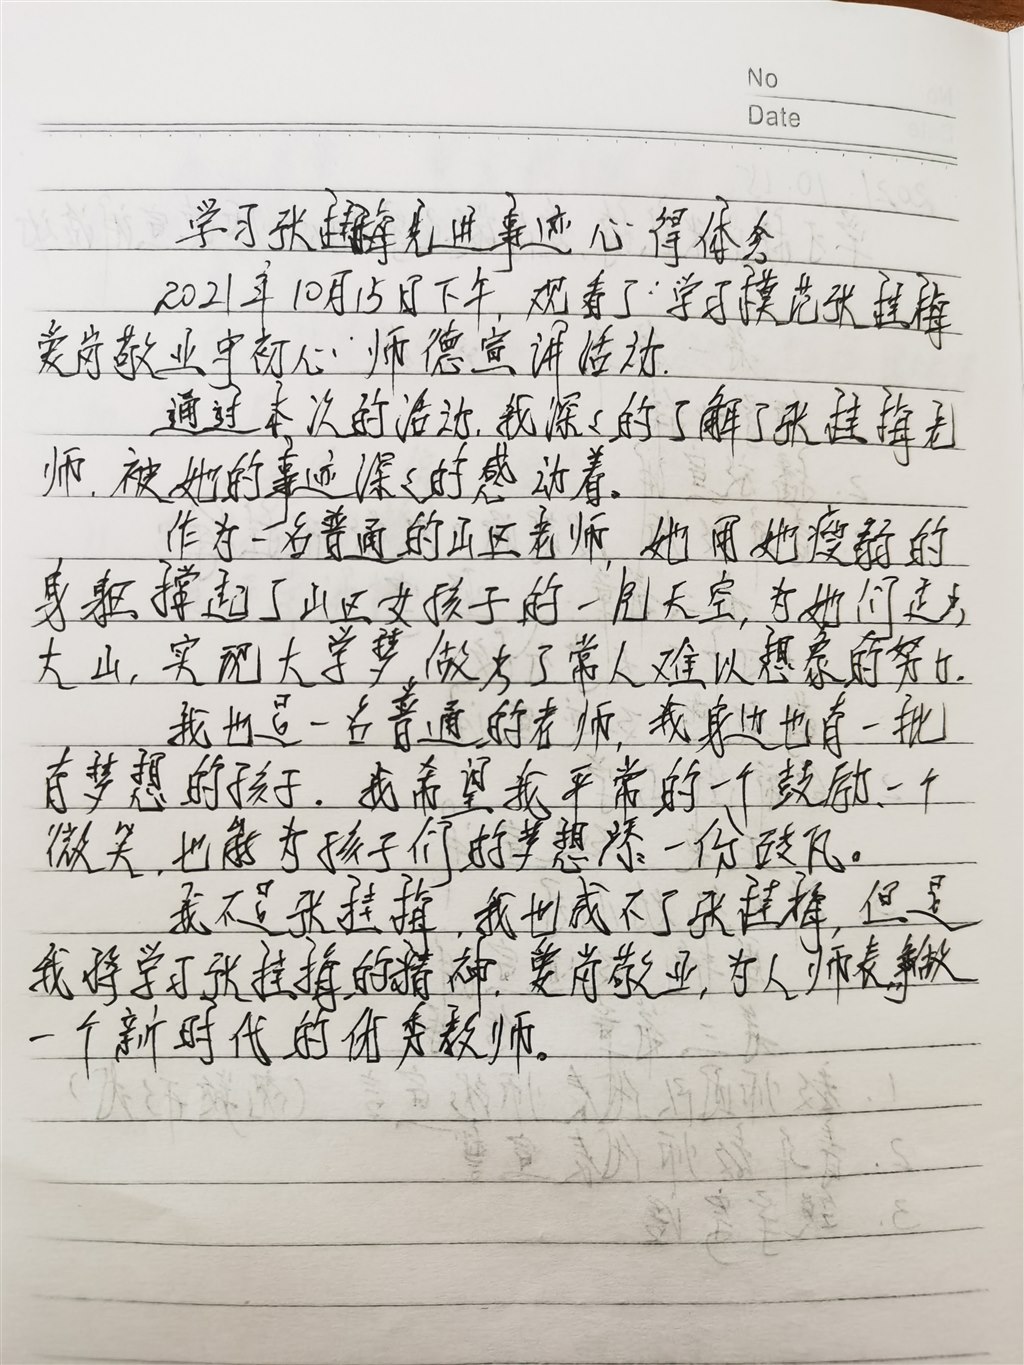 No
Date
学习张桂梅先进事迹心得体会
2021年10月15日下午，观看了“学习模范张桂梅
爱岗敬业守初心”师德宣讲活动.
通过本次的活动，我深深的了解了张桂梅老
师，被她的事迹深深的感动着。
作为一名普通的山区老师，她用她瘦弱的
身躯撑起了山区女孩子的一片天空，为她们走出
大山，实现大学梦，做出了常人难以想象的努力.
我也是一名普通的老师，我身边也有一批
有梦想的孩子.我希望我平常的一个鼓励、一个
微笑，也能为孩子们的梦想添一份鼓风。
我不是张桂梅，我也成不了张桂梅，但是
我将学习张桂梅的精神，爱岗敬业，为人师表，做
一个新时代的优秀教师。